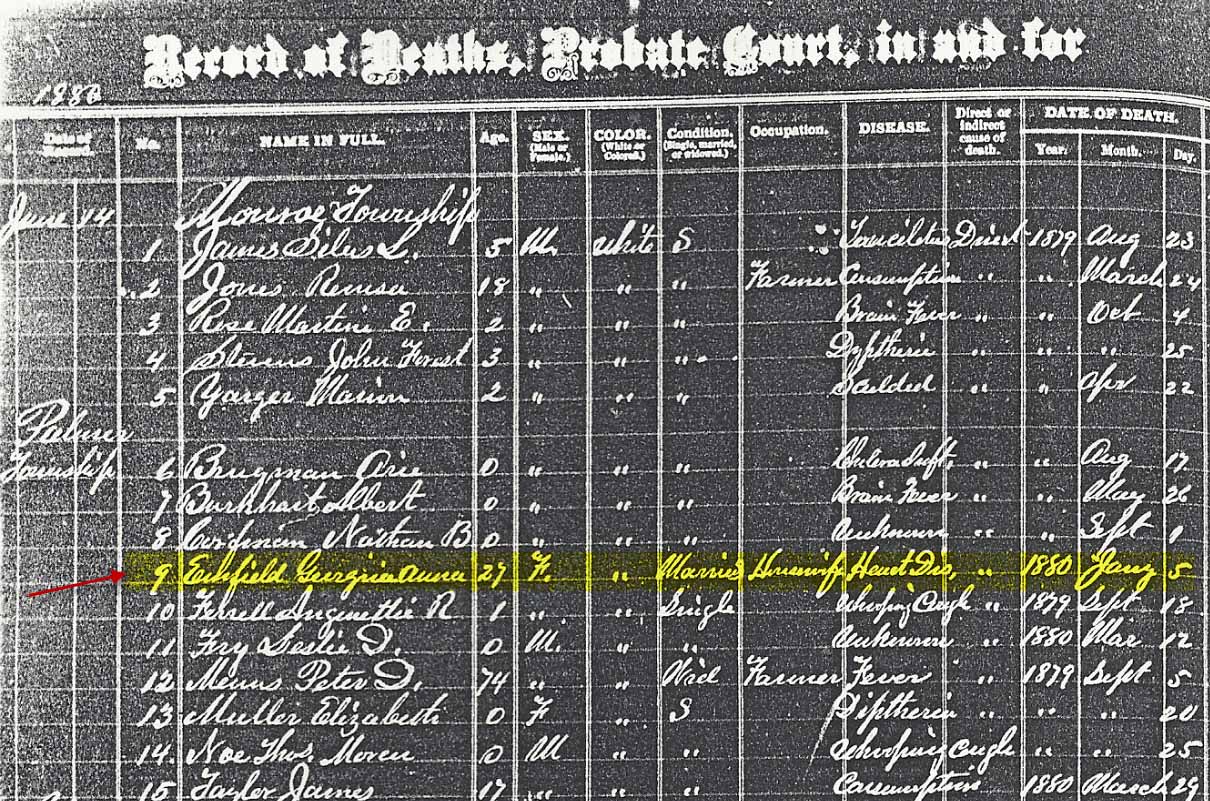 Record of Deaths, Probate Court, in and for
1880
No. NAME IN FULL. Age. SEX. (Male or Female.) COLOR. (White or Colored.) Condition. (Single, married, or widowed.) Occupation. DISEASE. Direct or indirect cause of death. DATE OF DEATH. Year. Month. Day.
June 14 Monroe Township
1 James Silas L. 5 M. White S Direct 1879 Aug 23
2 Jones 18 " " " Farmer Consumption " " March 24
3 Rose E. 2 " " " Brain Fever " " Oct 4
4 Stevens John Forest 3 " " " Diptheria " " " 25
5 Yarger Marion 2 " " " Scalded " " Apr 22
Palmer
Township 6 Brugman 0 " " " " " Aug 17
7 Burkhart Albert 0 " " " Brain Fever " " May 26
8 Nathan B 0 " " " Unknown " " Sept 1
9 Georgiia Anna 27 F. " Married Housewiff Heart Dis, " 1880 Jany 5
10 Ferrell R 1 " " Single Whooping Cough " 1879 Sept 18
11 Fry Leslie D. 0 M. " " Unknown " 1880 Mar 12
12 Peter D. 74 " " Wid Farmer Fever " 1879 Sept 5
13 Muller Elizabeth 0 F " S Diptheria " " " 20
14. Noe Thos. Moren 0 M " " Whooping cough " " 25
15 Taylor James 17 " " " Consumption 1880 March 29